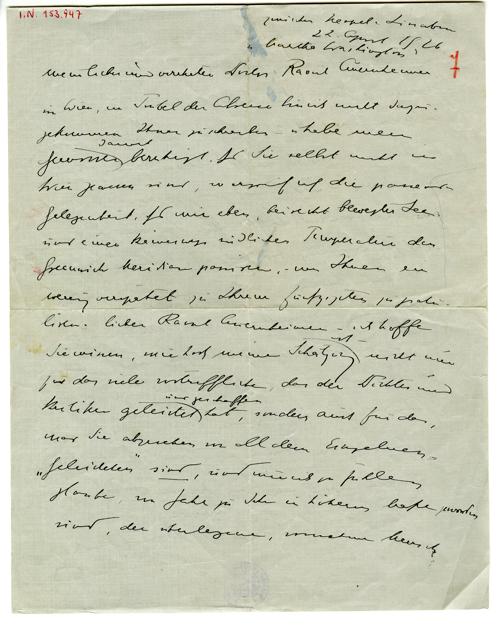 I.N. 153.947
zwischen Neapel - Lissabon
22. April 1926
"Martha Washington"
7
mein lieber und verehrter Doctor Raoul Auernheimer
in Wien, im Trubel der Abreise bin ich nicht dazu
gekommen Ihnen zu schreiben u habe mein
Gewissen damit beruhigt, dass Sie selbst nicht in
Wien gewesen sind,
Gelegenheit. Jetzt wir eben, bei recht bewegter See
und einer keineswegs südlichen Temperatur den
Greenwich Meridian passieren, um Ihnen ein
wenig verspätet zu Ihrem fünfzigsten zu gratu-
lieren. lieber Raoul Auernheimer - ich hoffe
Sie wissen, wie hoch meine Schätzung ist, nicht nur
für das viele vortreffliche, das der Dichter und
Kritiker geleistet und geschaffen hat, sondern auch für das,
was Sie abgesehen von all dem Einzelnen
"Geleisteten" sind, und wie mir zu fühlen
glaube, von Jahr zu Jahr in höherem Maße geworden
sind, der überlegene, vornehme Mensch